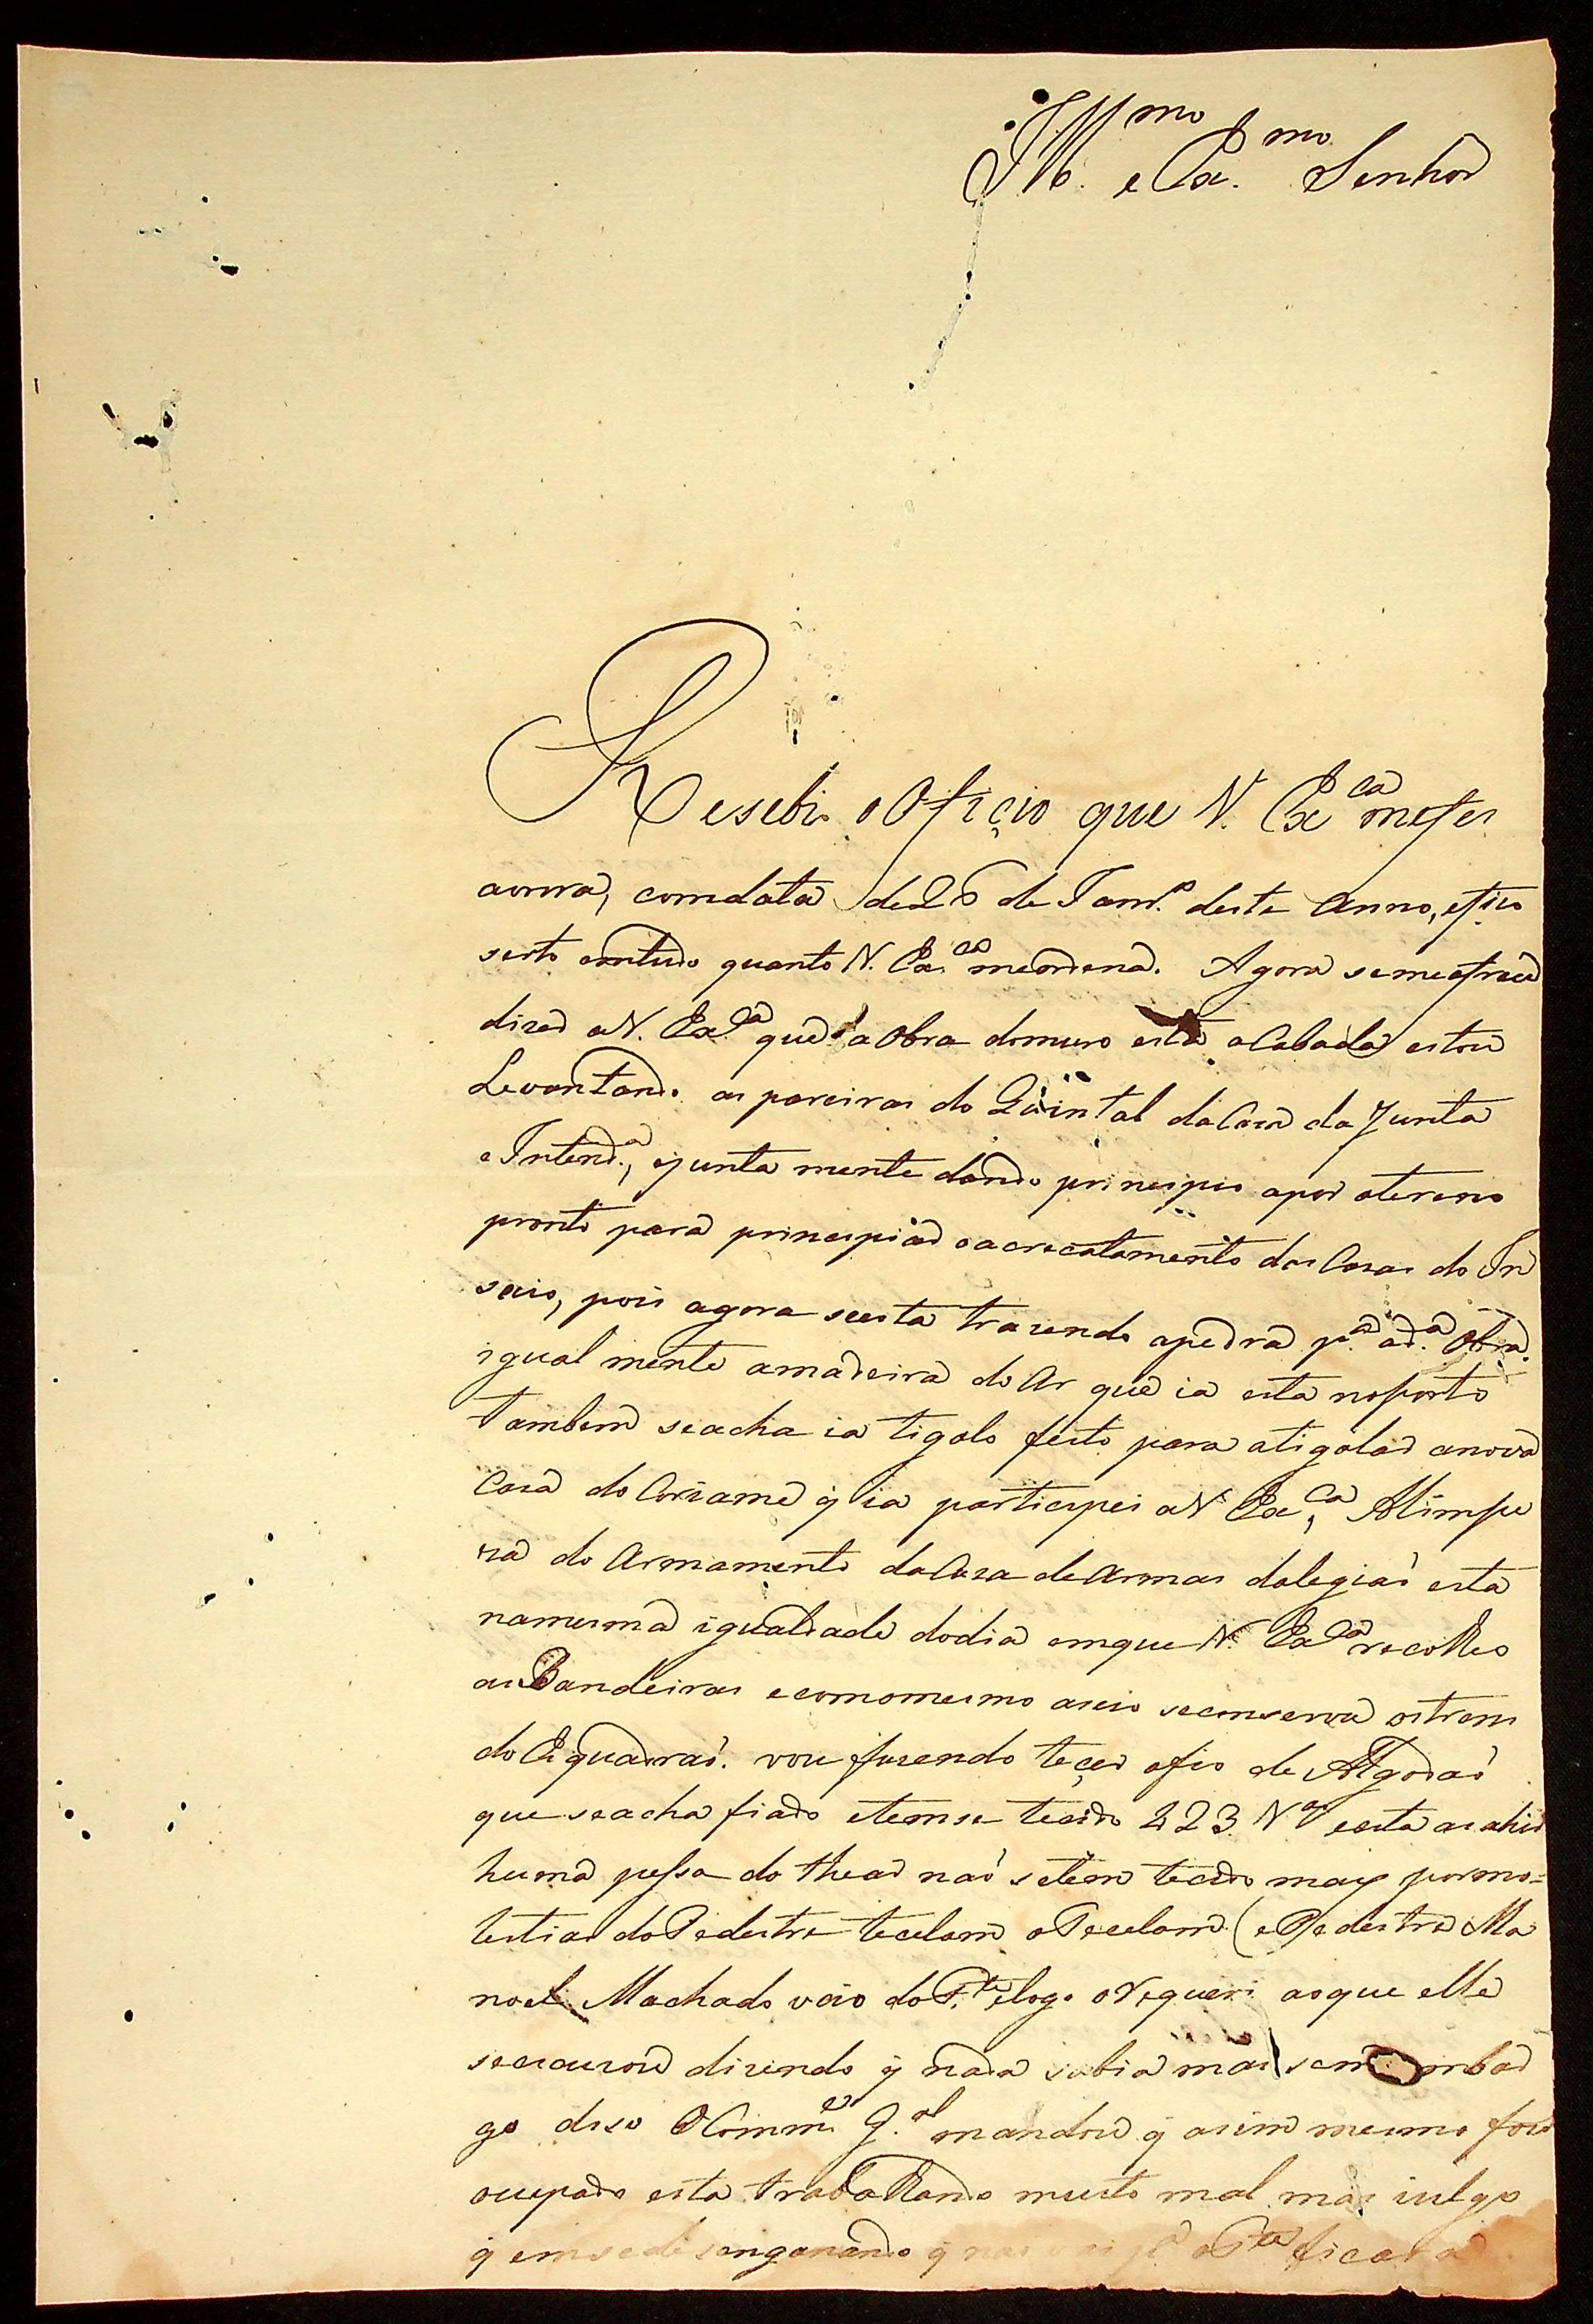 Ill.mo e Ex.mo Senhor
Resebi o Oficio que V. Ex.ca mefes
aonra, comdata de 26 de Janr.o deste Anno, efico
serto emtudo quanto V. Ex.ca meordena. Agora semeofrece
dizer aV. Ex.ca que a Obra domuro está acabada estou
Levantando as pareiras do Quintal daCaza da Junta
e Intend.a, ejunta mente dando principio apor otereno
pronto para principiar oacrecentamento das Cazas do In
saio, pois agora seesta trazendo apedra p.a ad.a Obra.
igual mente amadeira do Ar que ia esta noporto
tambem seacha ia tigolo feito para atigolar anova
Caza do Coriame q ia participei aV. Ex.ca, Alimpe
za do Armamento daCaza deArmas dalegiaó esta
namesma igualdade dodia emque V. Ex.ca recolheo
as Bandeiras ecomomesmo aseio seconserva otrem
do Esquadraó. vou fazendo teçer ofio de Algodaó
que seacha fiado etemse tecido 223 V.as eesta asahir
huma pessa do thear naó setem tecido mais pormo=
lestias do Pedestre tecelam oTecelam (ePedestre Ma
noel Machado veio do F.te elogo oRequeri aoque elle
seescuzou dizendo q nada sabia mas sem embar
go diso OComm.e G.al mandou q asim mesmo fose
ocupado esta trabalhando muito mal mas iulgo
q emsedesenganando q nao ficara